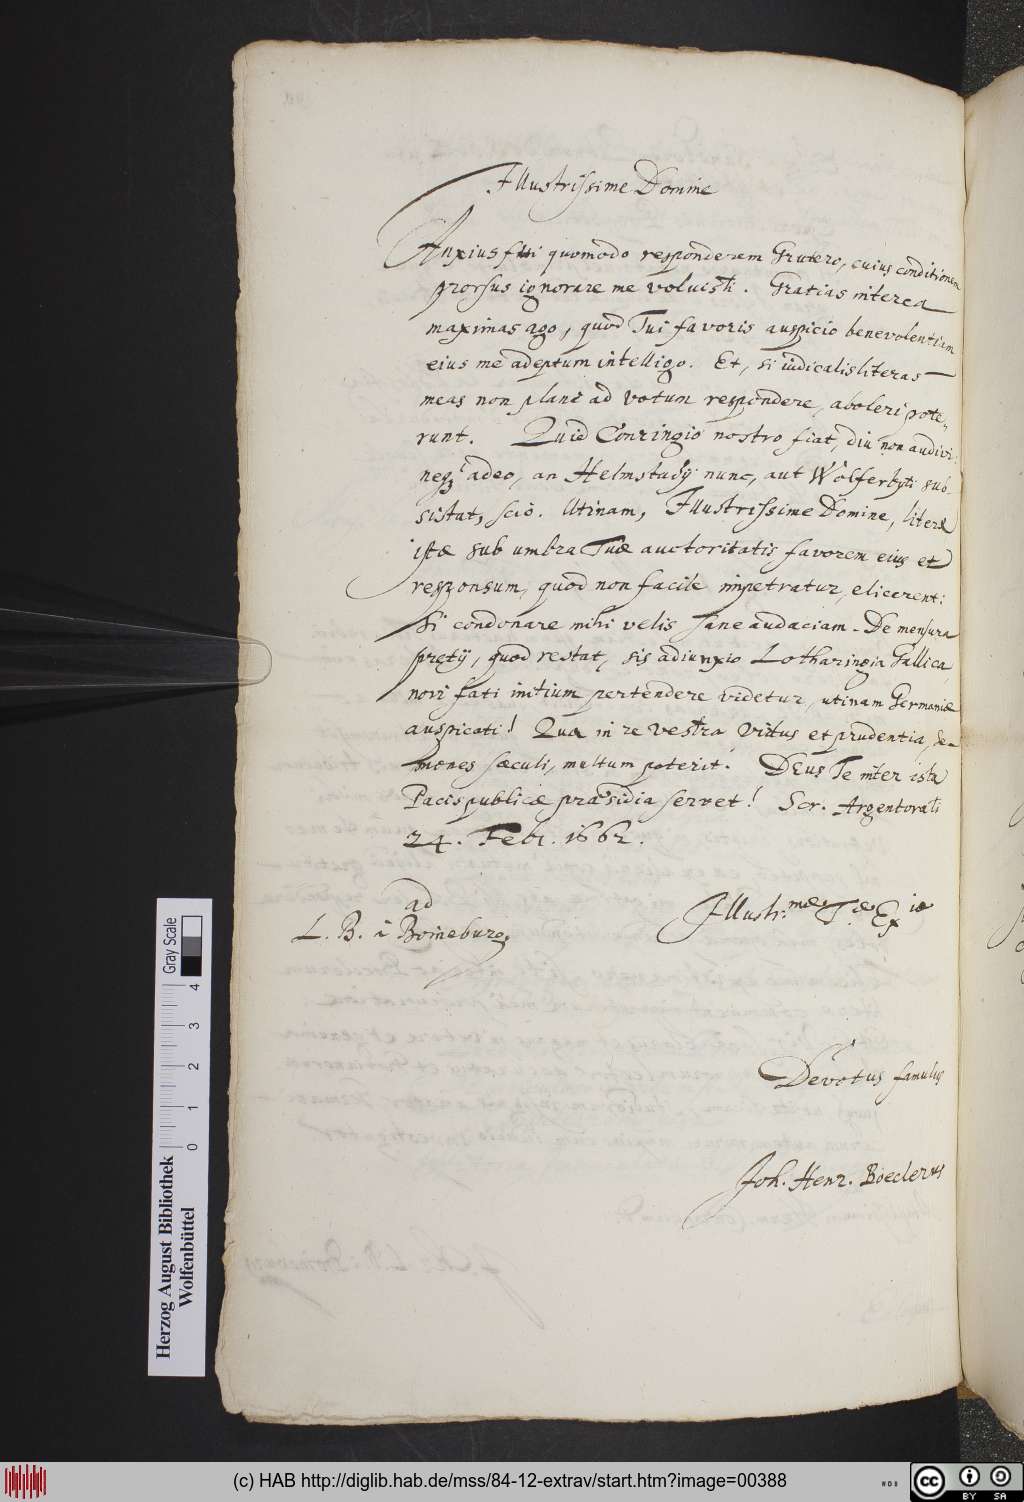 Illustrissime Domine
Anxius fui quomodo responderem Grutero, cuius conditionem
prorsus ignorare me voluisti. Gratias interea
maximas ago, quod Tui favoris auspicio benevolentiam
eius me adeptum intelligo. Et, si iudicalis literas
meas non plane ad votum respondere, aboleri pote-
runt. Quid Conringio nostro fiat, diu non audivi:
neq3 adeo, an Helmstadij nunc, aut Wolferbyti sub-
sistat, scio. Utinam, Illustrissime Domine, literæ
istæ sub umbra Tuæ auctoritatis favorem eius et
responsum, quod non facile impetratur, elicerent:
Si condonare mihi velis sane audaciam. De mensura
pretij, quod restat, sis adiunxio Lotharingia Gallica,
novi fati initium pertendere videtur, utinam Germaniæ
auspicati! Qua in re vestra virtus et prudentia,
mones sæculi, multum poterit. DEus Te inter ista
Pacis publicæ præsidia servet! Scr. Argentorati
24. Febr. 1662.
ad
L. B. à Boineburg.
Illustr.mæ T.æ Ex.iæ
Devotus famulus
Joh. Henr. Boeclerus
Herzog August Bibliothek
Wolfenbüttel
Gray Scale
0 1 2 3 4
(c) HAB http://diglib.hab.de/mss/84-12-extrav/start.htm?image=00388
cc BY SA